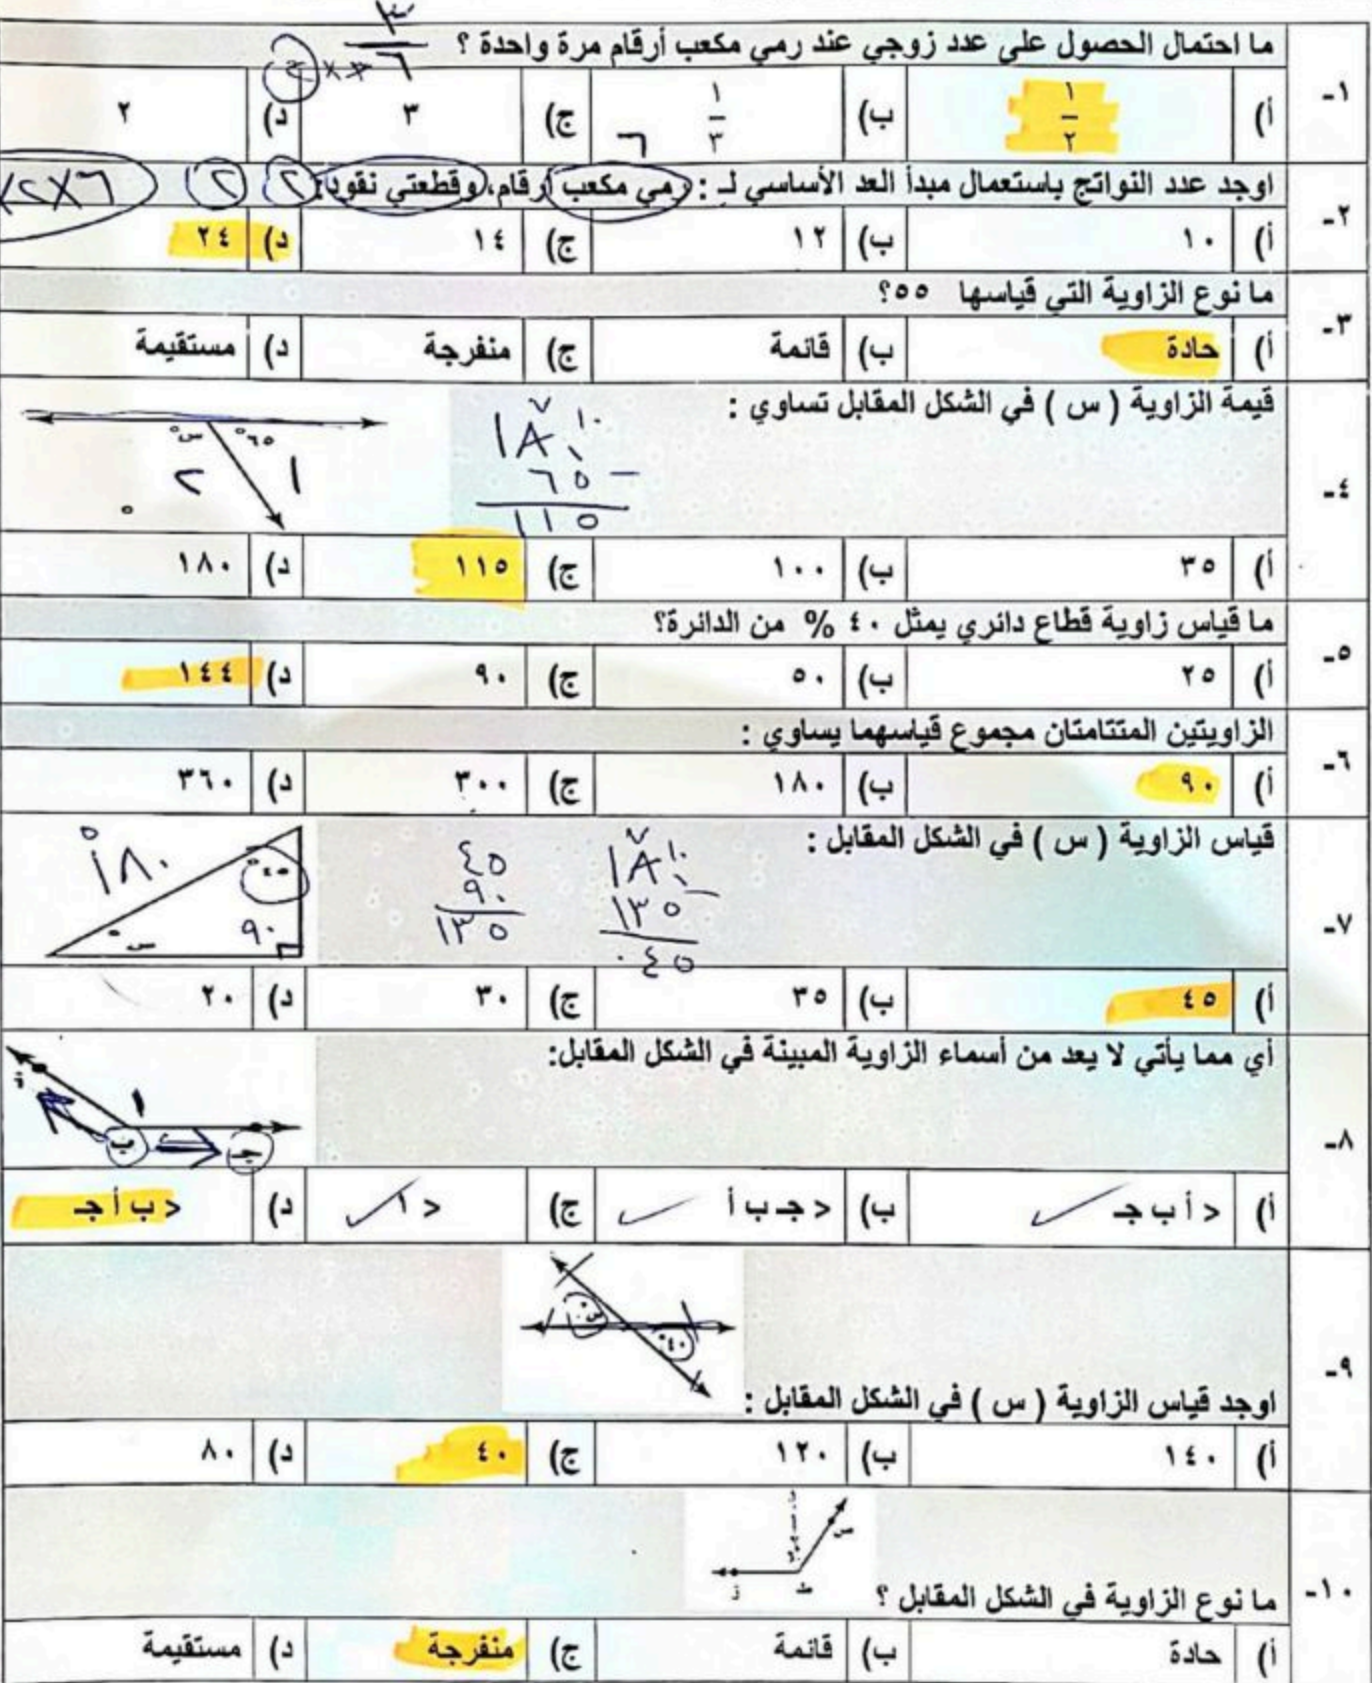 ٣
٦
١- ما احتمال الحصول على عدد زوجي عند رمي مكعب أرقام مرة واحدة ؟
أ) ١/٢ ب) ١/٣ ج) ٣ د) ٢
٦
٢- اوجد عدد النواتج باستعمال مبدأ العد الأساسي لـ : رمي مكعب أرقام، وقطعتي نقود: ٢ ٢ ٦×٢×
أ) ١٠ ب) ١٢ ج) ١٤ د) ٢٤
٣- ما نوع الزاوية التي قياسها ٥٥؟
أ) حادة ب) قائمة ج) منفرجة د) مستقيمة
٤- قيمة الزاوية ( س ) في الشكل المقابل تساوي :
س° ٦٥°
٢ ١
٧ ١٠
١٨٠
٦٥ −
١١٥
أ) ٣٥ ب) ١٠٠ ج) ١١٥ د) ١٨٠
٥- ما قياس زاوية قطاع دائري يمثل ٤٠ % من الدائرة؟
أ) ٢٥ ب) ٥٠ ج) ٩٠ د) ١٤٤
٦- الزاويتين المتتامتان مجموع قياسهما يساوي :
أ) ٩٠ ب) ١٨٠ ج) ٣٠٠ د) ٣٦٠
٧- قياس الزاوية ( س ) في الشكل المقابل :
٧ ١٠
١٨٠
١٣٥ −
٠٤٥
٤٥
٩٠
١٣٥
١٨٠°
٤٥°
س° ٩٠
أ) ٤٥ ب) ٣٥ ج) ٣٠ د) ٢٠
٨- أي مما يأتي لا يعد من أسماء الزاوية المبينة في الشكل المقابل:
١
ب جـ
أ) > أ ب جـ ب) > جـ ب أ ج) > ١ د) > ب أ جـ
س°
٤٠°
٩- اوجد قياس الزاوية ( س ) في الشكل المقابل :
أ) ١٤٠ ب) ١٢٠ ج) ٤٠ د) ٨٠
ز ط
١٠- ما نوع الزاوية في الشكل المقابل ؟
أ) حادة ب) قائمة ج) منفرجة د) مستقيمة